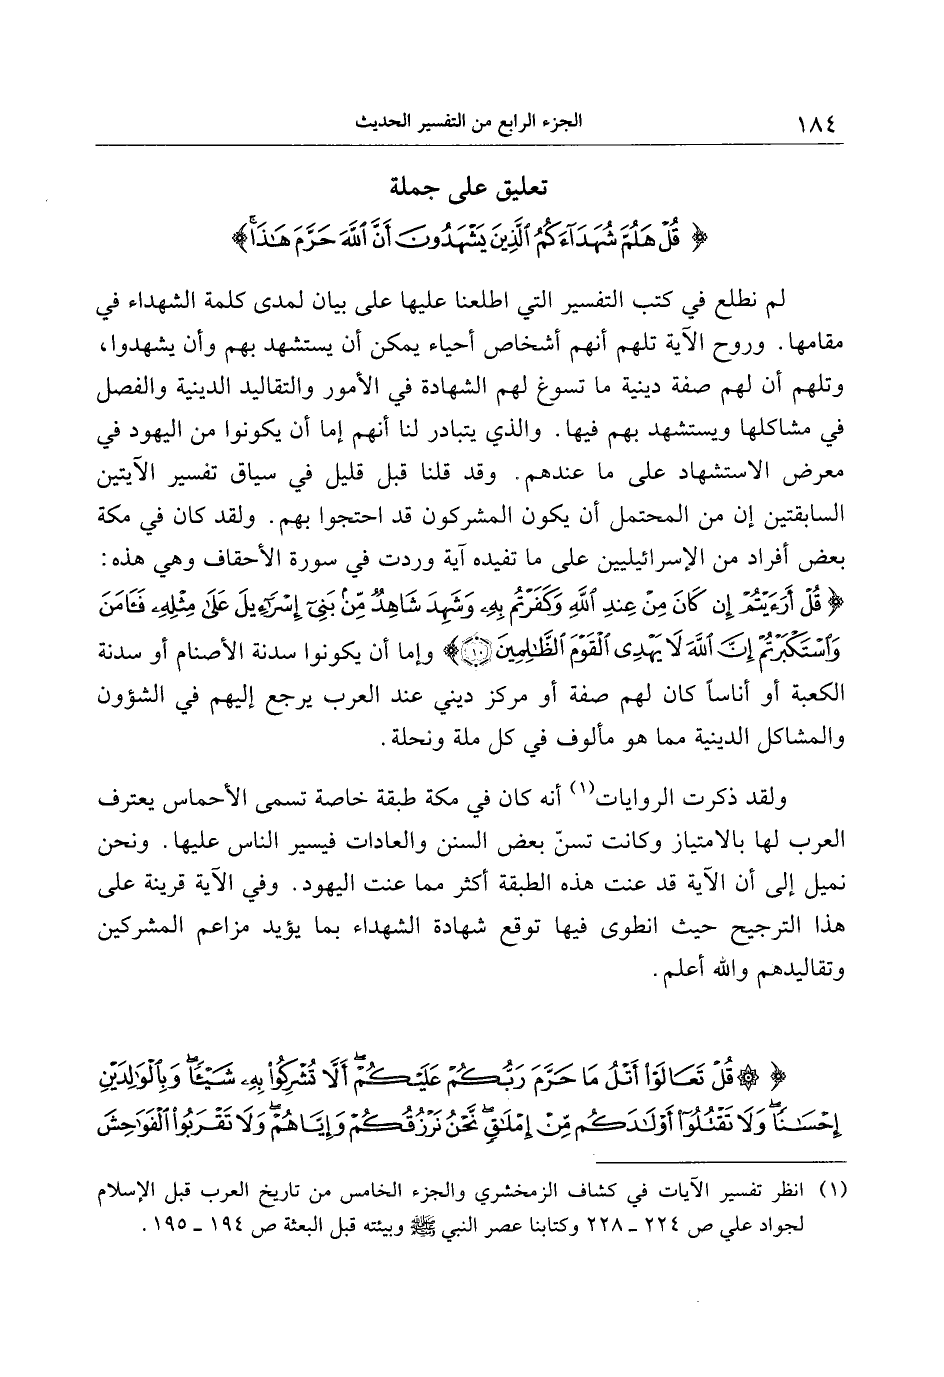 ١٨٤ الجزء الرابع من التفسير الحديث
تعليق على جملة
﴿ قُلْ هَلُمَّ شُهَدَآءَكُمُ ٱلَّذِينَ يَشْهَدُونَ أَنَّ ٱللَّهَ حَرَّمَ هَـٰذَا ۖ﴾
لم نطلع في كتب التفسير التي اطلعنا عليها على بيان لمدى كلمة الشهداء في
مقامها. وروح الآية تلهم أنهم أشخاص أحياء يمكن أن يستشهد بهم وأن يشهدوا،
وتلهم أن لهم صفة دينية ما تسوغ لهم الشهادة في الأمور والتقاليد الدينية والفصل
في مشاكلها ويستشهد بهم فيها. والذي يتبادر لنا أنهم إما أن يكونوا من اليهود في
معرض الاستشهاد على ما عندهم. وقد قلنا قبل قليل في سياق تفسير الآيتين
السابقتين إن من المحتمل أن يكون المشركون قد احتجوا بهم. ولقد كان في مكة
بعض أفراد من الإسرائيليين على ما تفيده آية وردت في سورة الأحقاف وهي هذه:
﴿ قُلْ أَرَءَيْتُمْ إِن كَانَ مِنْ عِندِ ٱللَّهِ وَكَفَرْتُم بِهِۦ وَشَهِدَ شَاهِدٌ مِّنۢ بَنِىٓ إِسْرَٰٓءِيلَ عَلَىٰ مِثْلِهِۦ فَـَٔامَنَ
وَٱسْتَكْبَرْتُمْ إِنَّ ٱللَّهَ لَا يَهْدِى ٱلْقَوْمَ ٱلظَّـٰلِمِينَ ١٠﴾ وإما أن يكونوا سدنة الأصنام أو سدنة
الكعبة أو أناساً كان لهم صفة أو مركز ديني عند العرب يرجع إليهم في الشؤون
والمشاكل الدينية مما هو مألوف في كل ملة ونحلة.
ولقد ذكرت الروايات(١) أنه كان في مكة طبقة خاصة تسمى الأحماس يعترف
العرب لها بالامتياز وكانت تسنّ بعض السنن والعادات فيسير الناس عليها. ونحن
نميل إلى أن الآية قد عنت هذه الطبقة أكثر مما عنت اليهود. وفي الآية قرينة على
هذا الترجيح حيث انطوى فيها توقع شهادة الشهداء بما يؤيد مزاعم المشركين
وتقاليدهم والله أعلم.
﴿ ۞ قُلْ تَعَالَوْا۟ أَتْلُ مَا حَرَّمَ رَبُّكُمْ عَلَيْكُمْ ۖ أَلَّا تُشْرِكُوا۟ بِهِۦ شَيْـًٔا ۖ وَبِٱلْوَٰلِدَيْنِ
إِحْسَـٰنًا ۖ وَلَا تَقْتُلُوٓا۟ أَوْلَـٰدَكُم مِّنْ إِمْلَـٰقٍ ۖ نَّحْنُ نَرْزُقُكُمْ وَإِيَّاهُمْ ۖ وَلَا تَقْرَبُوا۟ ٱلْفَوَٰحِشَ
(١) انظر تفسير الآيات في كشاف الزمخشري والجزء الخامس من تاريخ العرب قبل الإسلام
لجواد علي ص ٢٢٤ - ٢٢٨ وكتابنا عصر النبي ﷺ وبيئته قبل البعثة ص ١٩٤ - ١٩٥.